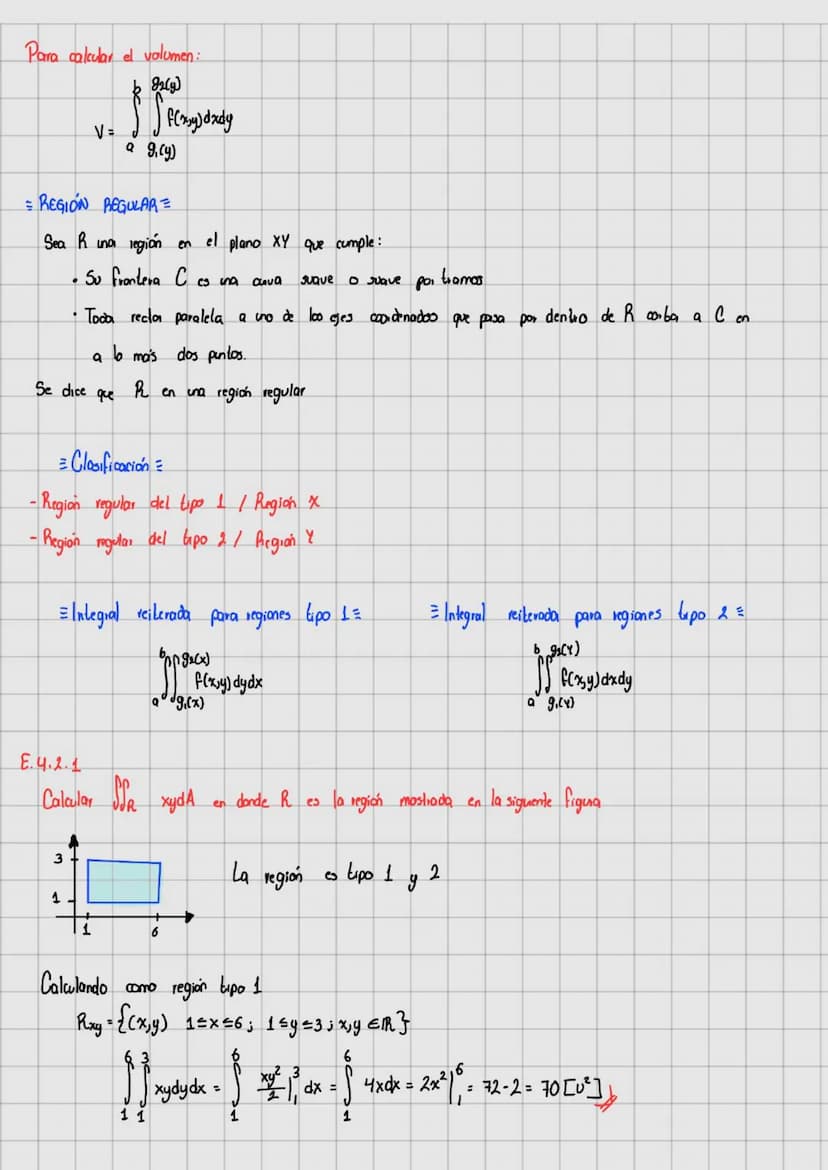 Para calcular el volumen:
V = ∫_a^b ∫_{g₁(y)}^{g₂(y)} f(x,y)dxdy
≡ REGIÓN REGULAR ≡
Sea R una región en el plano XY que cumple:
• Su frontera C es una curva suave o suave por tramos
• Toda recta paralela a uno de los ejes coordenados que pasa por dentro de R corta a C en
a lo más dos puntos.
Se dice que R en una región regular
≡ Clasificación ≡
- Región regular del tipo 1 / Región X
- Región regular del tipo 2 / Región Y
≡ Integral reiterada para regiones tipo 1 ≡
∫_a^b ∫_{g₁(x)}^{g₂(x)} f(x,y)dydx
≡ Integral reiterada para regiones tipo 2 ≡
∫_a^b ∫_{g₁(y)}^{g₂(y)} f(x,y)dxdy
E.4.2.1
Calcular ∬_R xydA en donde R es la región mostrada en la siguiente figura
3
1
1 6
La región es tipo 1 y 2
Calculando como región tipo 1
Rxy = {(x,y) 1≤x≤6; 1≤y≤3; x,y ∈ ℝ}
∫_1^6 ∫_1^3 xydydx = ∫_1^6 xy²/2 |_1^3 dx = ∫_1^6 4xdx = 2x² |_1^6 = 72-2 = 70 [u²]